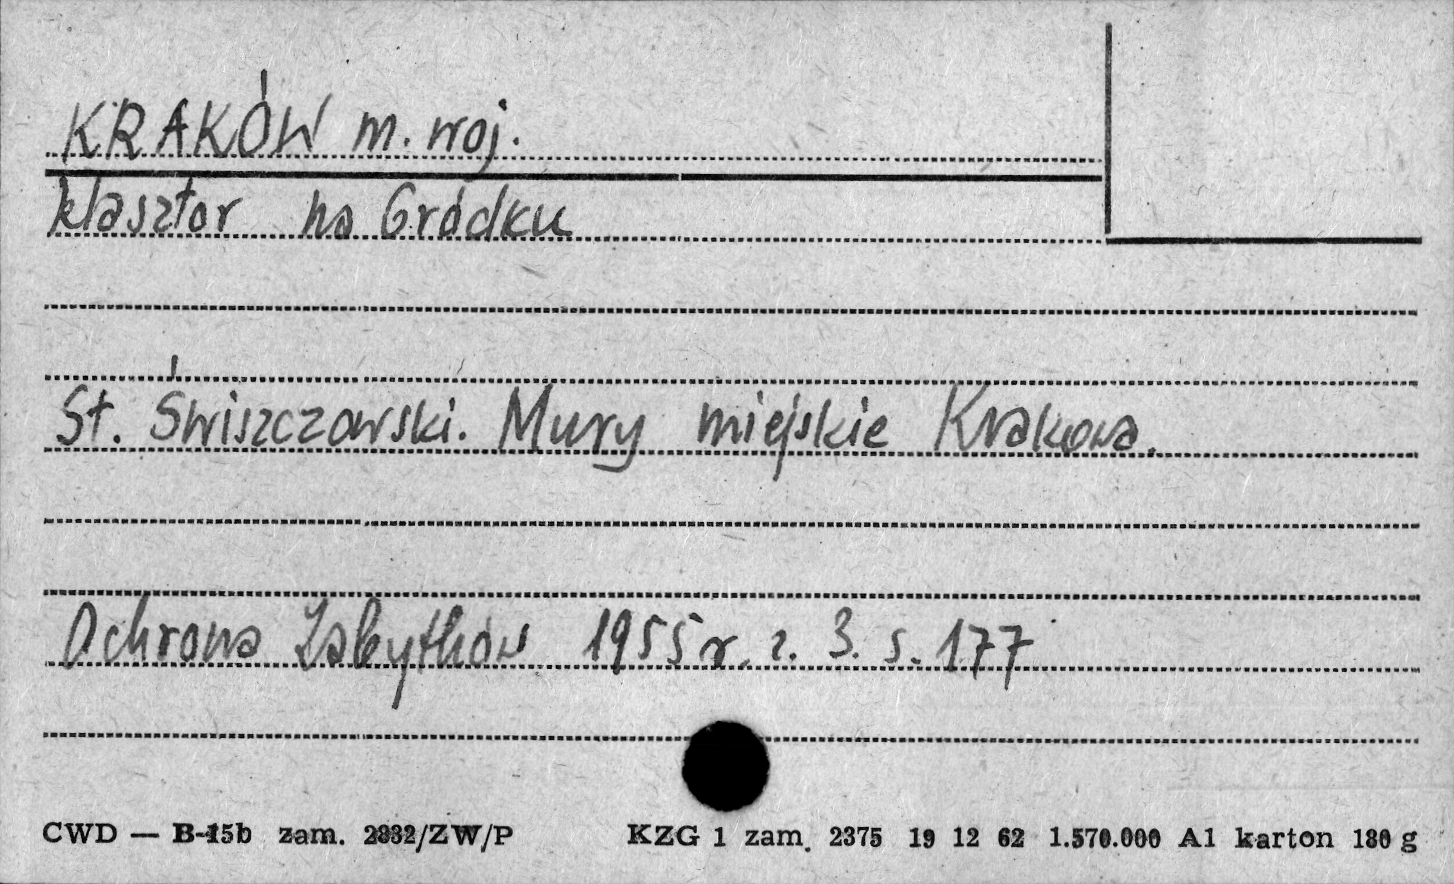 KRAKÓW m. woj.
klasztor na Gródku
St. Świszczowski. Mury miejskie Krakowa.
Ochrona Zabytków 1955 r. z. 3. s. 177
CWD — B-15b zam. 2832/ZW/P KZG 1 zam. 2375 19 12 62 1.570.000 A1 karton 180 g